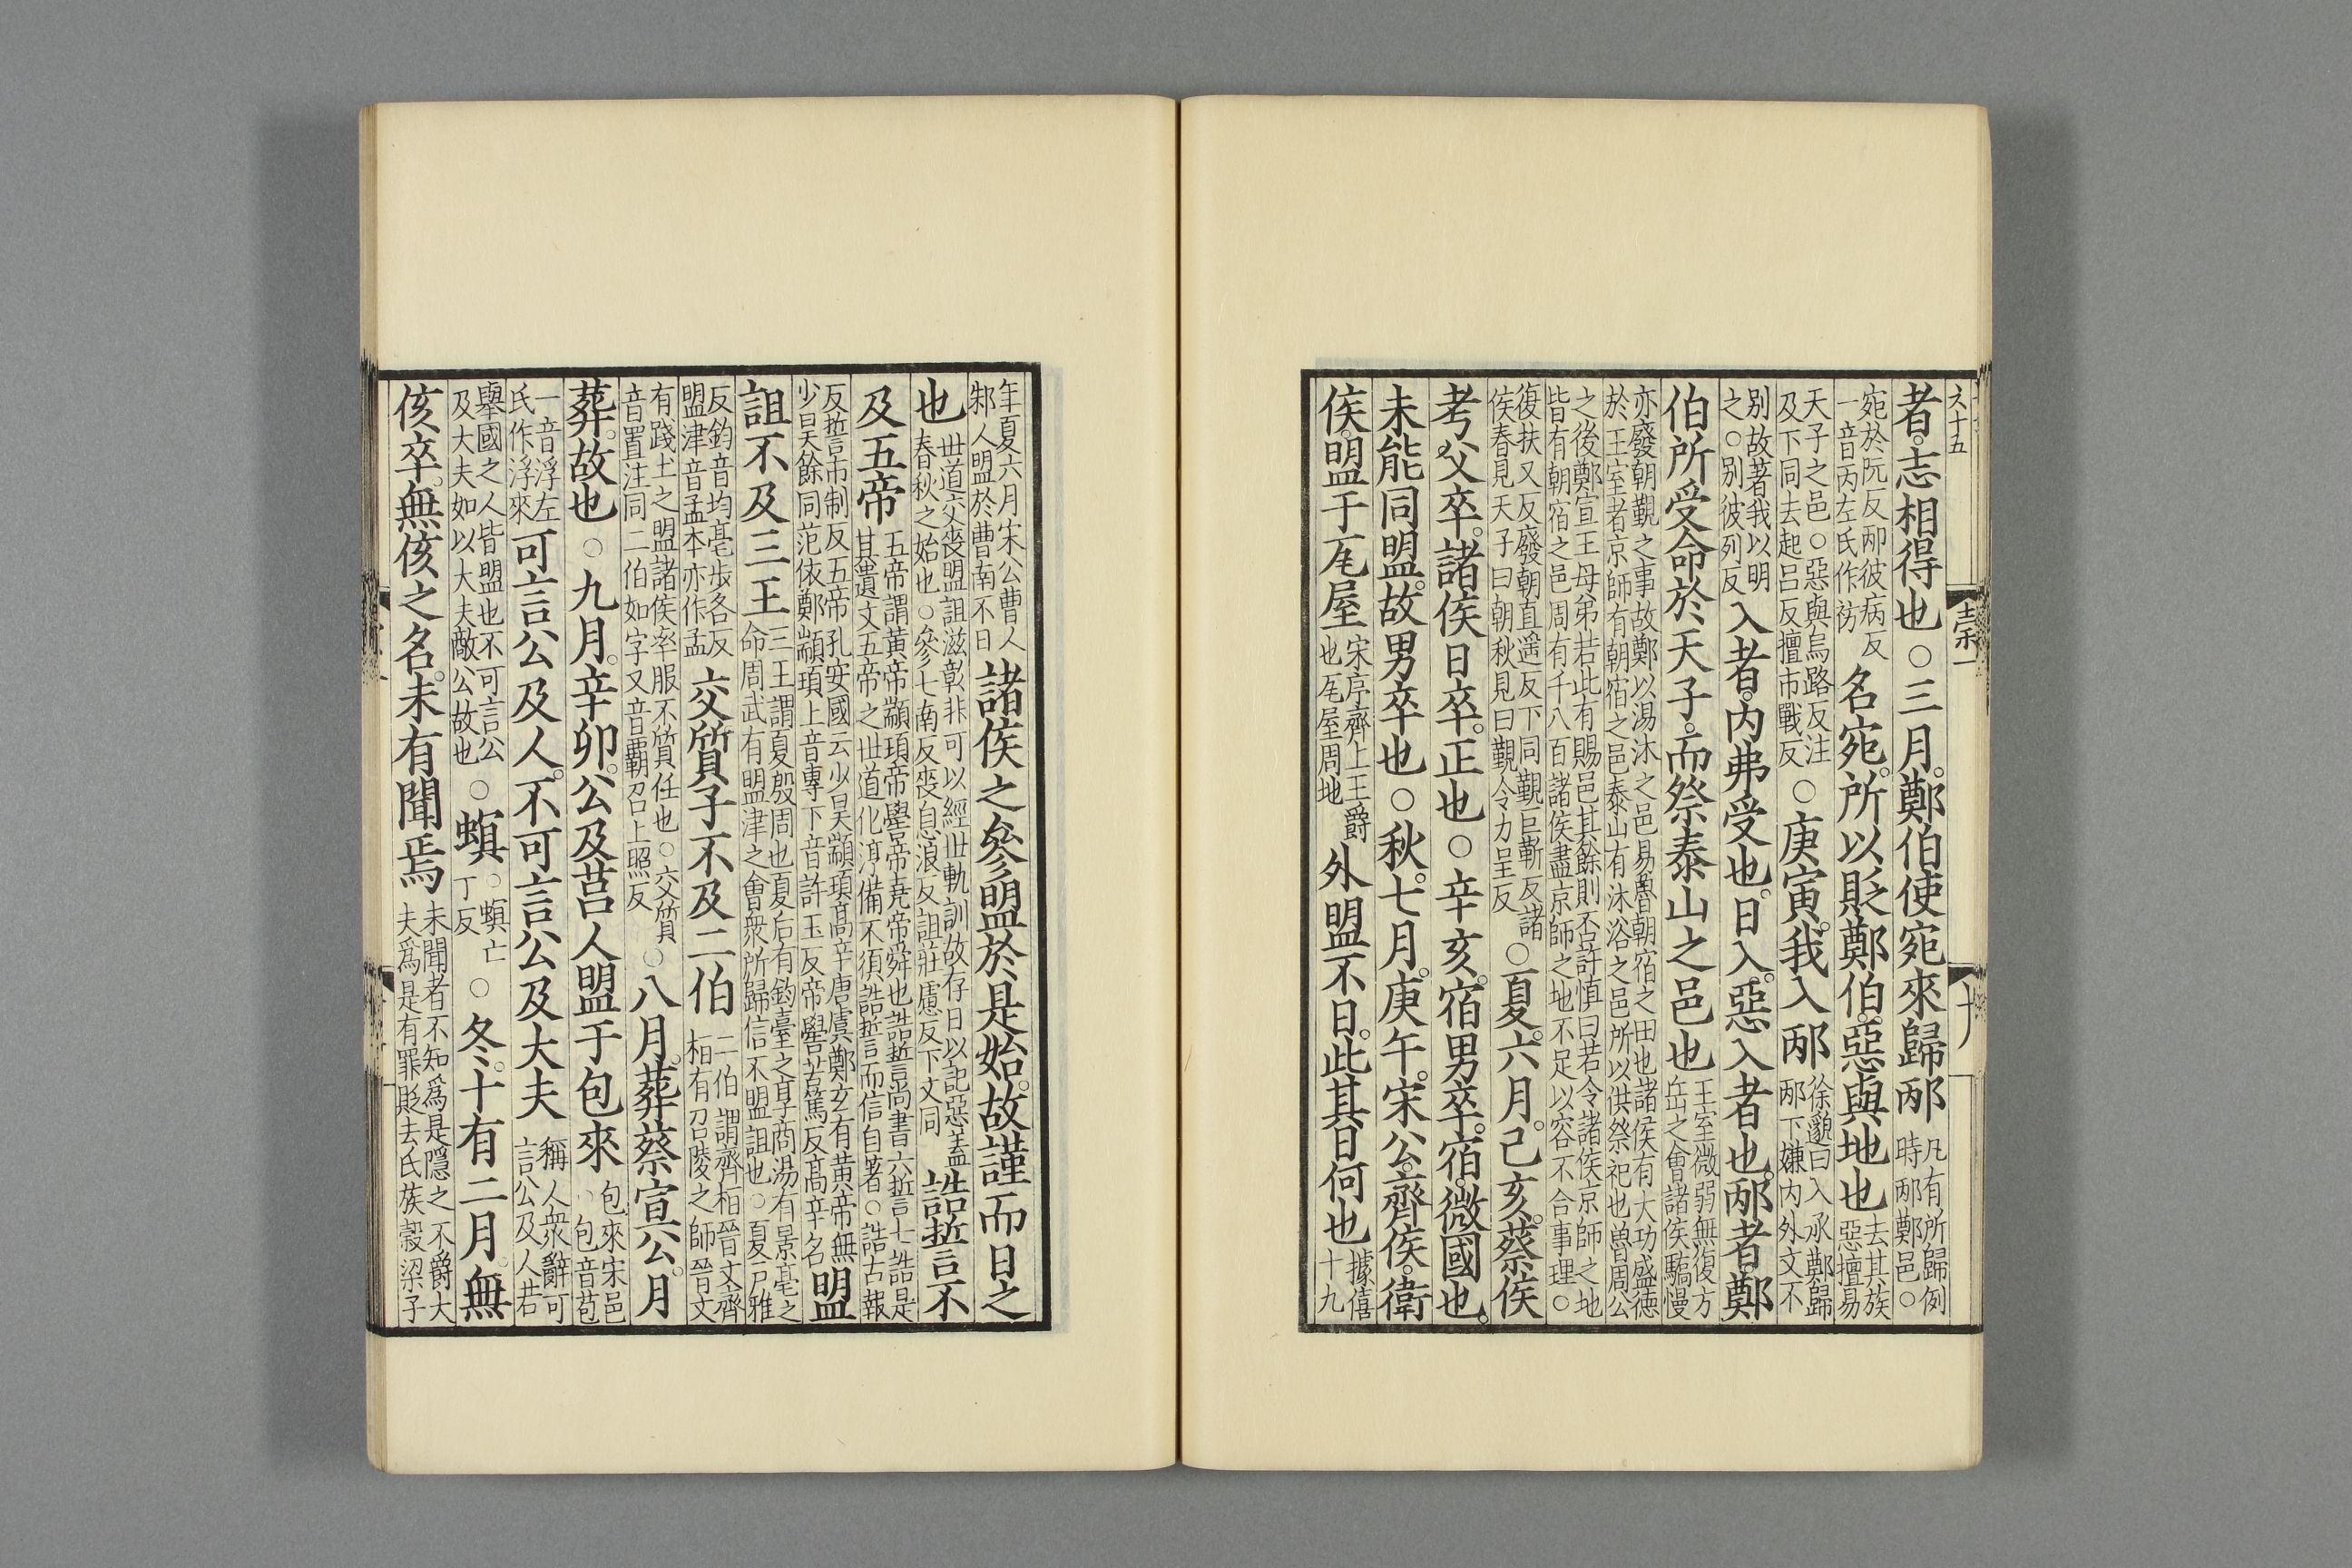 者。志相得也○三月。鄭伯使宛來歸邴凡有所歸例時邴鄭邑○
宛於阮反邴彼病反一音丙左氏作祊名宛。所以貶鄭伯。惡與地也去其族惡擅易
天子之邑○惡與烏路反注及下同去起呂反擅市戰反○庚寅。我入邴徐邈曰入承鄭歸邴下嫌內外文不
別故著我以明之○別彼列反入者。內弗受也。日入。惡入者也。邴者。鄭
伯所受命於天子。而祭泰山之邑也王室微弱無復方岳之會諸侯驕慢
亦廢朝覲之事故鄭以湯沐之邑易魯朝宿之田也諸侯有大功盛德於王室者京師有朝宿之邑泰山有沐浴之邑所以供祭祀也魯周公
之後鄭宣王母弟若此有賜邑其餘則否許慎曰若令諸侯京師之地皆有朝宿之邑周有千八百諸侯盡京師之地不足以容不合事理○
復扶又反廢朝直遥反下同覲巨靳反諸侯春見天子曰朝秋見曰覲令力呈反○夏。六月。己亥。蔡侯
考父卒。諸侯日卒。正也○辛亥。宿男卒。宿。微國也。
未能同盟。故男卒也○秋。七月。庚午。宋公。齊侯。衛
侯盟于尾屋宋序齊上王爵也尾屋周地外盟不日。此其日何也據僖十九
年夏六月宋公曹人邾人盟於曹南不日諸侯之參盟於是始。故謹而日之
也世道交喪盟詛滋彰非可以經世軌訓故存日以記惡蓋春秋之始也○參七南反喪息浪反詛莊慮反下文同誥誓不
及五帝五帝謂黃帝顓頊帝嚳帝堯帝舜也誥誓尚書六誓七誥是其遺文五帝之世道化淳備不須誥誓而信自著○誥古報
反誓市制反五帝孔安國云少昊顓頊高辛唐虞鄭玄有黃帝無少昊餘同范依鄭顓頊上音專下音許玉反帝嚳苦篤反高辛名盟
詛不及三王三王謂夏殷周也夏后有鈞臺之享商湯有景亳之命周武有盟津之會衆所歸信不盟詛也○夏戶雅
反鈞音均亳步各反盟津音孟本亦作孟交質子不及二伯二伯謂齊桓晉文齊桓有召陵之師晉文
有踐土之盟諸侯率服不質任也○交質音置注同二伯如字又音霸召上照反○八月。葬蔡宣公。月
葬。故也○九月。辛卯。公及莒人盟于包來包來宋邑○包音苞
一音浮左氏作浮來可言公及人。不可言公及大夫稱人衆辭可言公及人若
舉國之人皆盟也不可言公及大夫如以大夫敵公故也○螟○螟亡丁反○冬。十有二月。無
侅卒。無侅之名。未有聞焉未聞者不知爲是隱之不爵大夫爲是有罪貶去氏族穀梁子